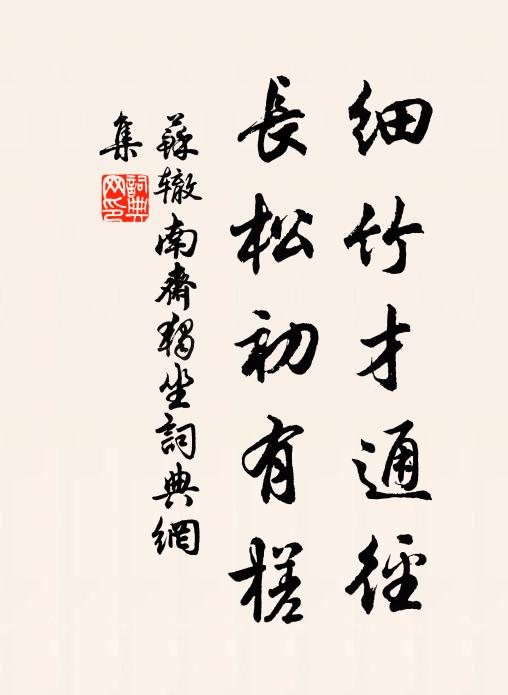 细竹才通径
長松初有槎
蘇辙南齋獨坐詞典網
集
詞典網印